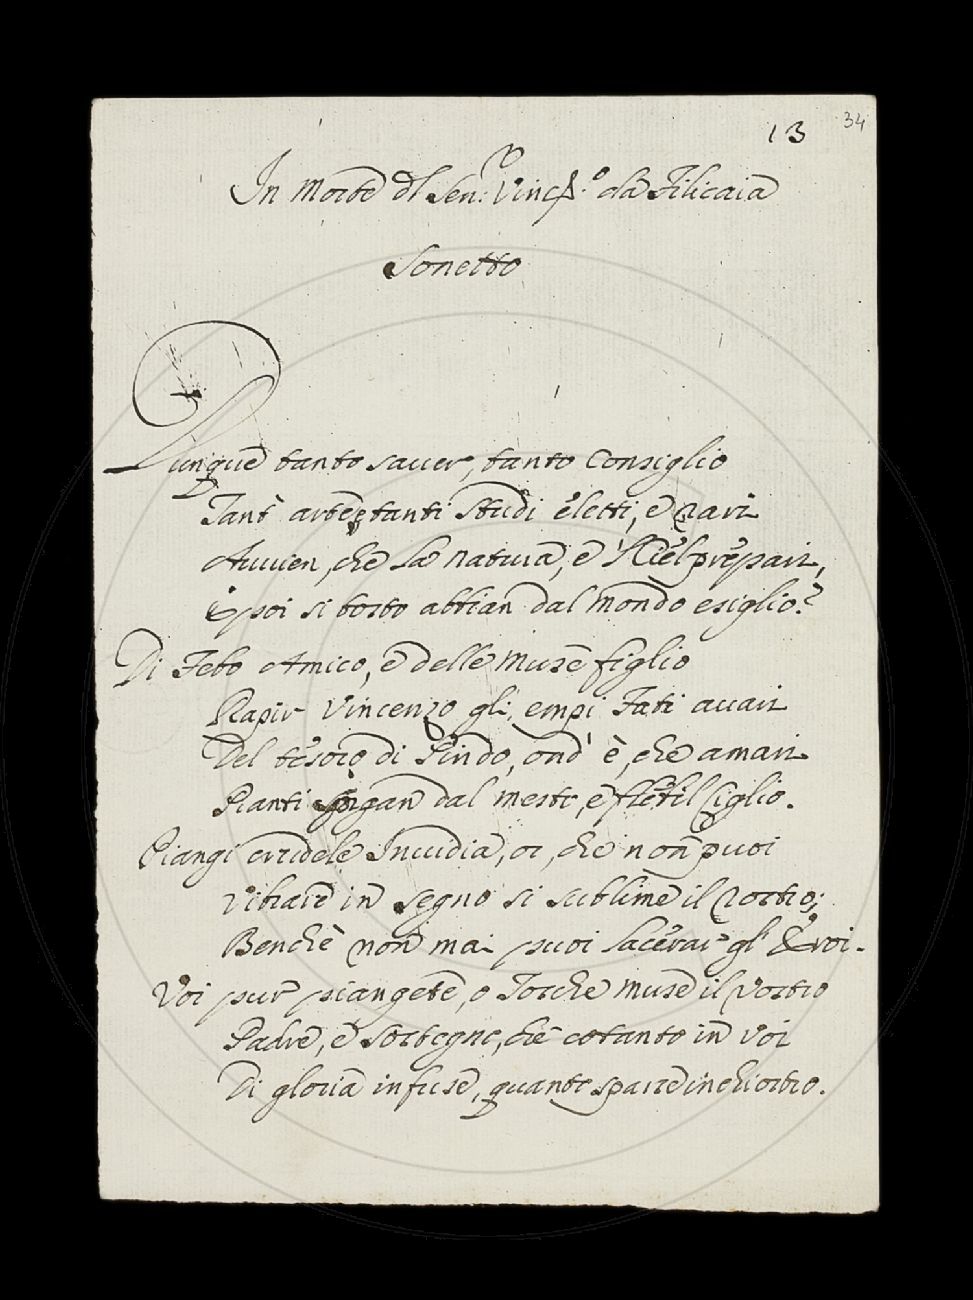 13 34
In Morte dl Sen: Vinc.o da Filicaia
Sonetto
Dunque tanto saver, tanto Consiglio
Tant' arte, e tanti Studi eletti, e rari
Avvien, che la natura, e 'l Ciel prepari,
E poi si tosto abbian dal Mondo esiglio?
Di Febo Amico, e delle Muse figlio
Rapir Vincenzo gli empi Fati avari
Del tesoro di Pindo, ond' è, che amari
Pianti sorgan dal mesto, e flebil Ciglio.
Piangi crudele Invidia, or, che non puoi
Vibrare in segno si sublime il rostro;
Benchè non mai puoi lacerar gl' Eroi.
Voi pur piangete, o Tosche Muse il vostro
Padre, e Sostegno, che cotanto in voi
Di gloria infuse, quanto sparse inchiostro.